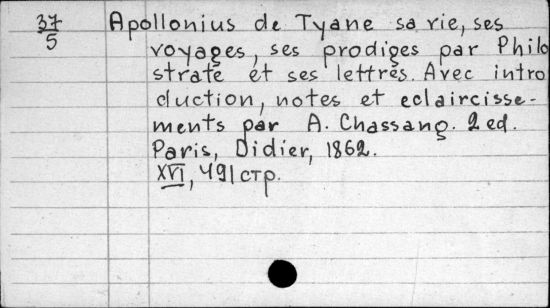 37/5 Apollonius de Tyane sa vie, ses
voyages, ses prodiges par Philo
strate et ses lettres. Avec intro
duction, notes et eclaircisse-
ments par A. Chassang. 2 ed.
Paris, Didier, 1862.
XVI, 491 стр.